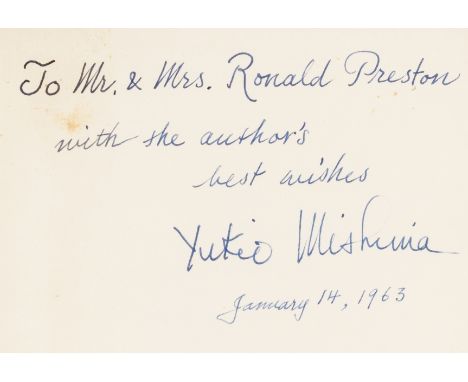 To Mr. & Mrs. Ronald Preston
with the author's
best wishes
Yukio Mishima
January 14, 1963